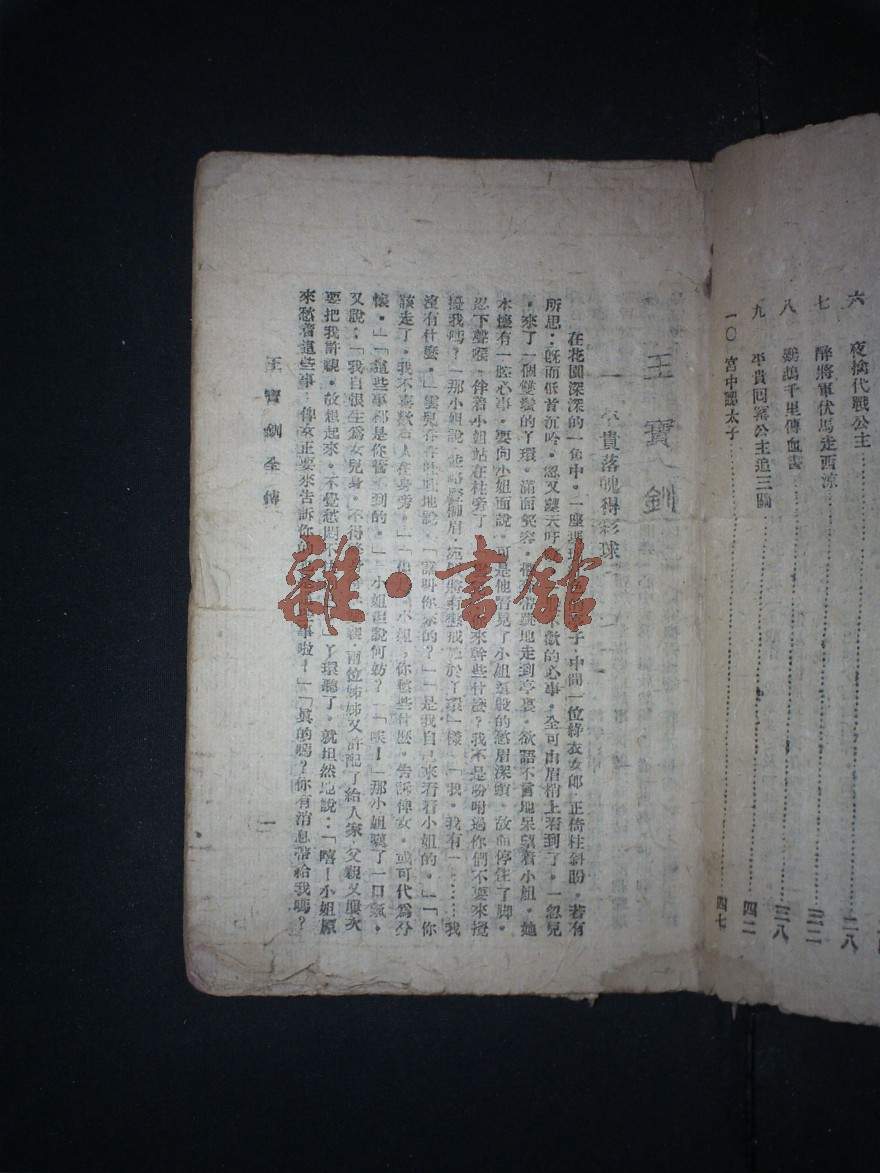 六　夜擒代戰公主…………二八
七　醉將軍伏馬走西涼…………三二
八　鴻鵠千里傳血書…………三八
九　平貴回窰公主追三關…………四二
一〇　宮中認太子…………四七
王寶釧
一　平貴落魄得彩球
在花園深深的一角中。一座 子，中間一位綠衣女郎，正倚柱斜盼，若有
所思；旣而低首沉吟，忽又聽天吁 歡的心事，全可由眉梢上看到了。一忽兒
。來了一個雙鬟的丫環。滿面笑容。 跳地走到亭裏。欲語不言地呆望着小姐。她
本懷有一腔心事。要向小姐面說。可是他看見了小姐這般的愁眉深鎖。故而停住了脚。
忍下聲喉。伴着小姐站在柱旁了 來幹些什麼？我不是吩咐過你們不要來攪
擾我嗎？」那小姐說 於丫環一樣。「我。我有一………我
沒有什麼。」雲兒吞吞吐吐地說。「誰叫你來的？」「是我自己來看看小姐的。」「你
該走了。我不喜歡有人在身旁。」「 小姐，你愁些什麼。告訴俾女。或可代爲分
懷。」「這些事都是你管不到的。」「小姐但說何妨？」「唉！」那小姐嘆了一口氣。
又說：「我自恨生爲女兒身。不得 。兩位姊姊又許配了給人家，父親又屢次
要把我許親。故想起來。不覺愁悶不 」丫環聽了。就坦然地說：「嘻！小姐原
來愁着這些事；俾女正要來告訴你的 事啦！」「眞的嗎？你有消息帶給我嗎？
王寶釧全傳
一
雜·書館